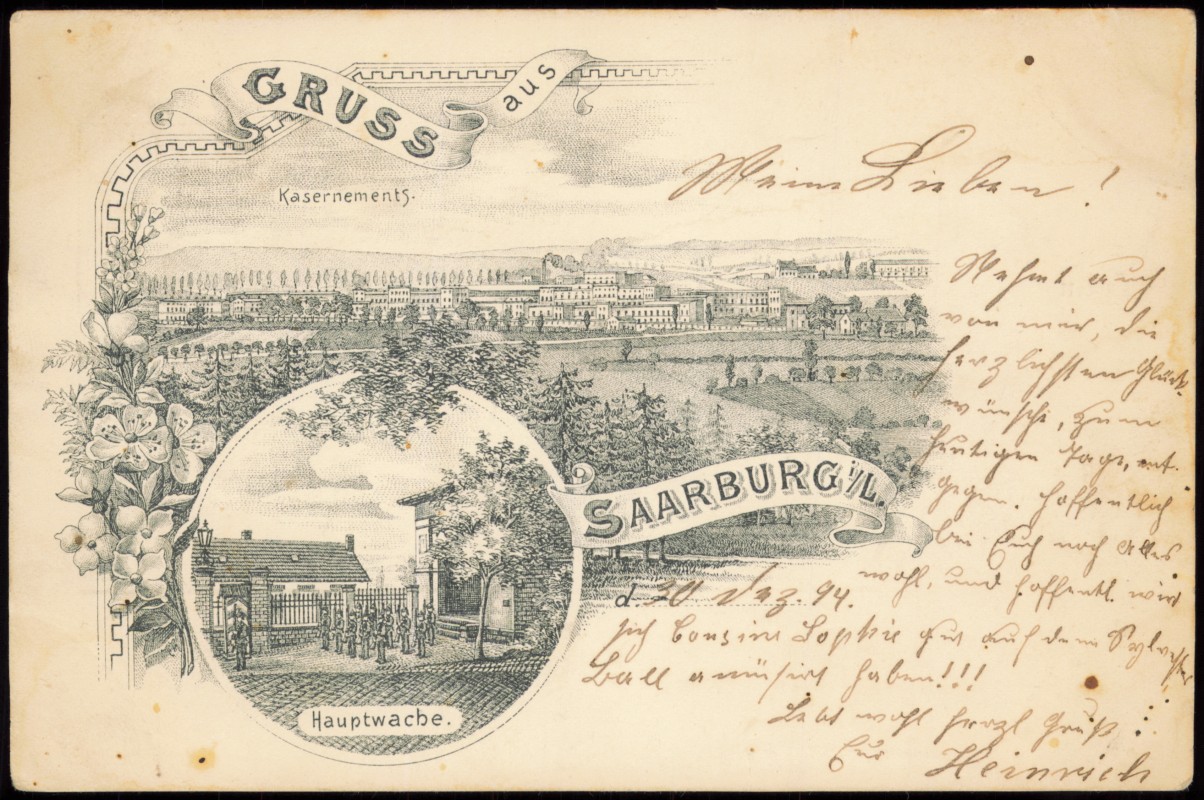 GRUSS aus
Kasernements.
Meine Lieben!
Nehmt auch
von mir, die
herzlichsten Glück-
wünsche, zum
heutigen Tage, ent-
gegen. Hoffentlich
bei Euch noch Alles
wohl, und hoffentl. wird
SAARBURG i/L.
d. 30 Dez. 94.
sich Cousine Sophie gut auf dem Sylvester
Ball amüsirt haben!!!
Lebt wohl herzl Gruß
Eur Heinrich
Hauptwache.